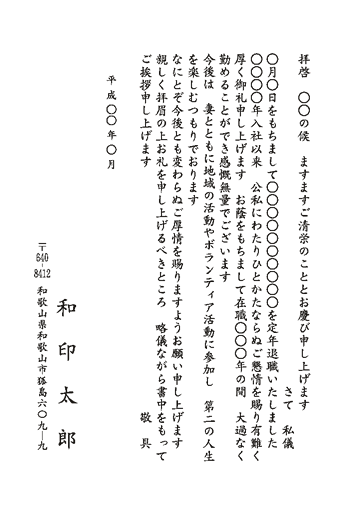 拝啓　〇〇の候　ますますご清栄のこととお慶び申し上げます
さて　私儀
〇月〇日をもちまして〇〇〇〇〇〇〇〇を定年退職いたしました
〇〇〇〇年入社以来　公私にわたりひとかたならぬご懇情を賜り有難く
厚く御礼申し上げます　お蔭をもちまして在職〇〇〇年の間　大過なく
勤めることができ感慨無量でございます
今後は　妻とともに地域の活動やボランティア活動に参加し　第二の人生
を楽しむつもりでおります
なにとぞ今後とも変わらぬご厚情を賜りますようお願い申し上げます
親しく拝眉の上お礼を申し上げるべきところ　略儀ながら書中をもって
ご挨拶申し上げます
敬　具
平成〇〇年〇月
和印太郎
〒640-8412　和歌山県和歌山市狐島六〇九―九